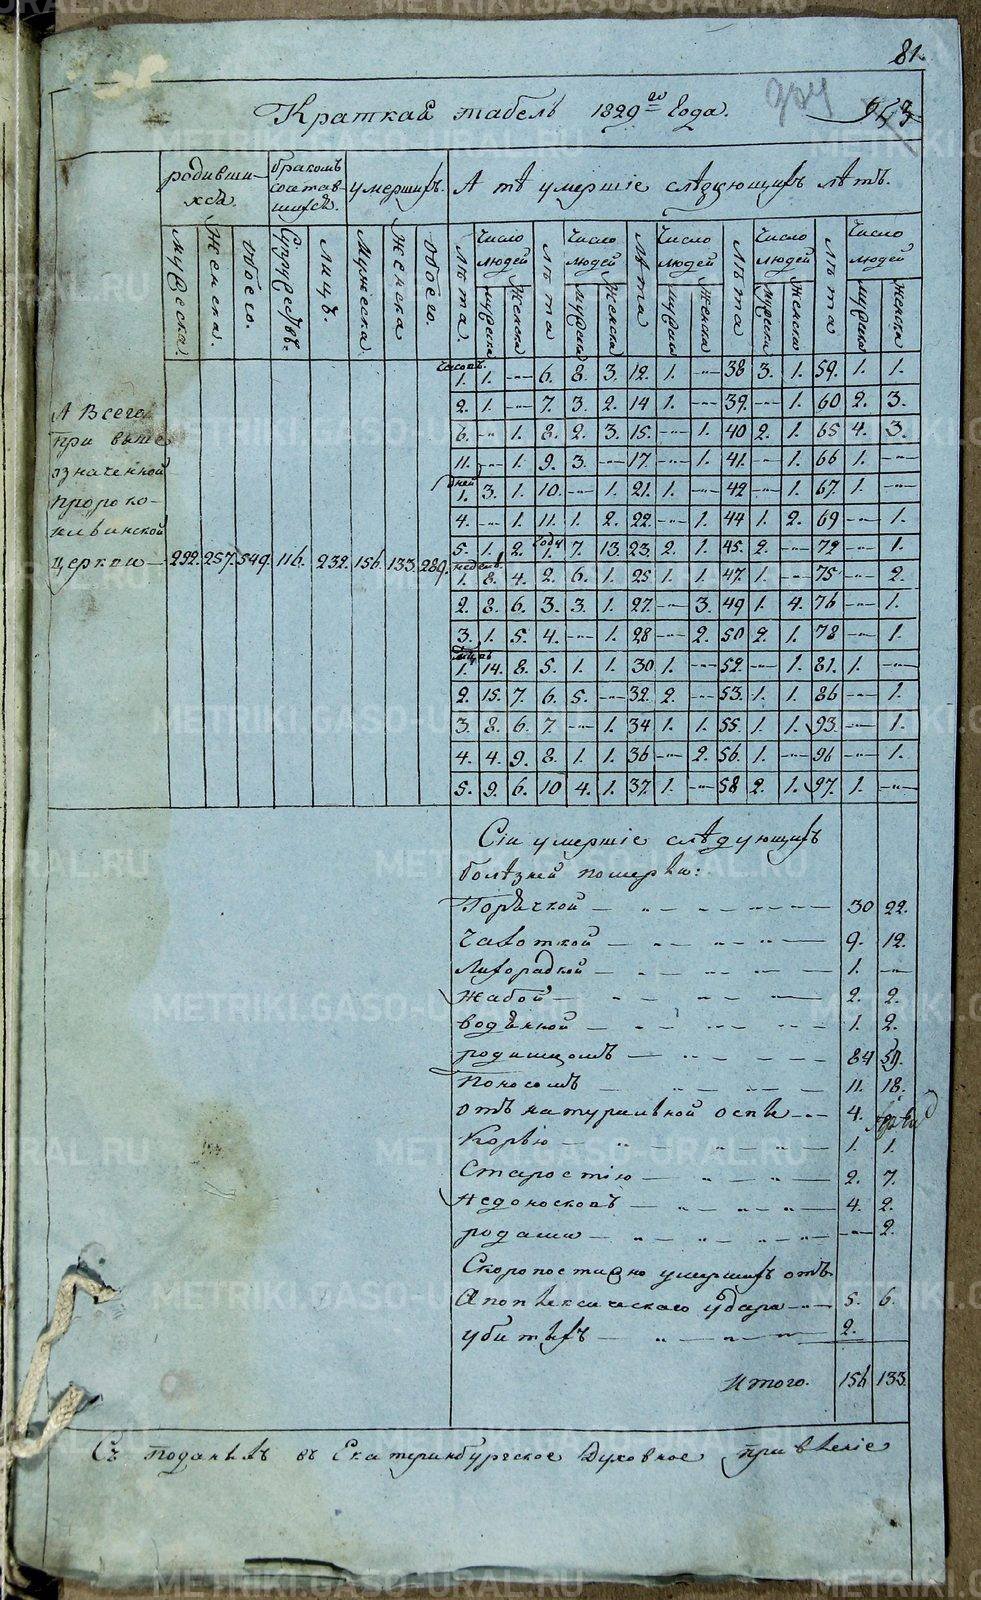 81.
Краткая табель 1829го Года.
953
родивши-
хся.
браком
состав-
шихся.
умерших.
А те умершіе следующих летъ.
мужеска.
Женска.
Обоего.
Супружествъ.
Лицъ.
Мужеска.
Женска
Обоего.
Лета.
Число людей
мужска
Женска
Лета
Число людей
мужска
Женска
Лета
Число людей
мужска
женска
Лета
Число людей
мужска
женска
Лета
Число людей
мужска
женска
А Всего
при выше
означенной
Пророко-
ильинской
церкви — 292. 257. 549. 116. 232. 156. 133. 289.
часовъ.
1. 1. — 6. 8. 3. 12. 1. — 38 3. 1. 59. 1. 1.
2. 1. — 7. 3. 2. 14 1. — 39. — 1. 60 2. 3.
6. — 1. 8. 2. 3. 15. — 1. 40 2. 1. 65 4. 3.
11. — 1. 9. 3. — 17. — 1. 41. — 1. 66 1. —
дней
1. 3. 1. 10. — 1. 21. 1. — 42 — 1. 67. 1. —
4. — 1. 11. 1. 2. 22. — 1. 44 1. 2. 69 — 1.
году
5. 1. 2. 1. 7. 13. 23. 2. 1. 45. 2. — 72 — 1.
недель
1. 8. 4. 2. 6. 1. 25 1. 1. 47. 1. — 75 — 2.
2. 8. 6. 3. 3. 1. 27. — 3. 49 1. 4. 76 — 1.
3. 1. 5. 4. — 1. 28 — 2. 50 2. 1. 78 — 1.
1. 14. 8. 5. 1. 1. 30 1. — 52. — 1. 81. 1. —
2. 15. 7. 6. 5. — 32. 2. — 53. 1. 1. 86 — 1.
3. 8. 6. 7. — 1. 34 1. 1. 55. 1. 1. 93. — 1.
4. 4. 9. 8. 1. 1. 36 — 2. 56. 1. — 96 — 1.
5. 9. 6. 10 4. 1. 37. 1. — 58 2. 1. 97. 1. —
Сіи умершіе следующих
болезней померли:
Горячкой — 30 22.
Чахоткой — 9. 12.
Лихорадкой — 1. —
Жабой — 2. 2.
водяной — 1. 2.
родимцомъ — 84 59.
Поносомъ — 11. 18.
отъ натуральной оспы — 4.
Корью — 1. 1.
Старостію — 2. 7.
Недоносковъ — 4. 2.
родами — — 2.
Скоропостижно умерших отъ
Апоплексическаго удара — 5. 6.
убитых — 2.
Итого. 156 133.
Съ поданных въ Екатеринбургское Духовное правленіе
METRIKI.GASO-URAL.RU